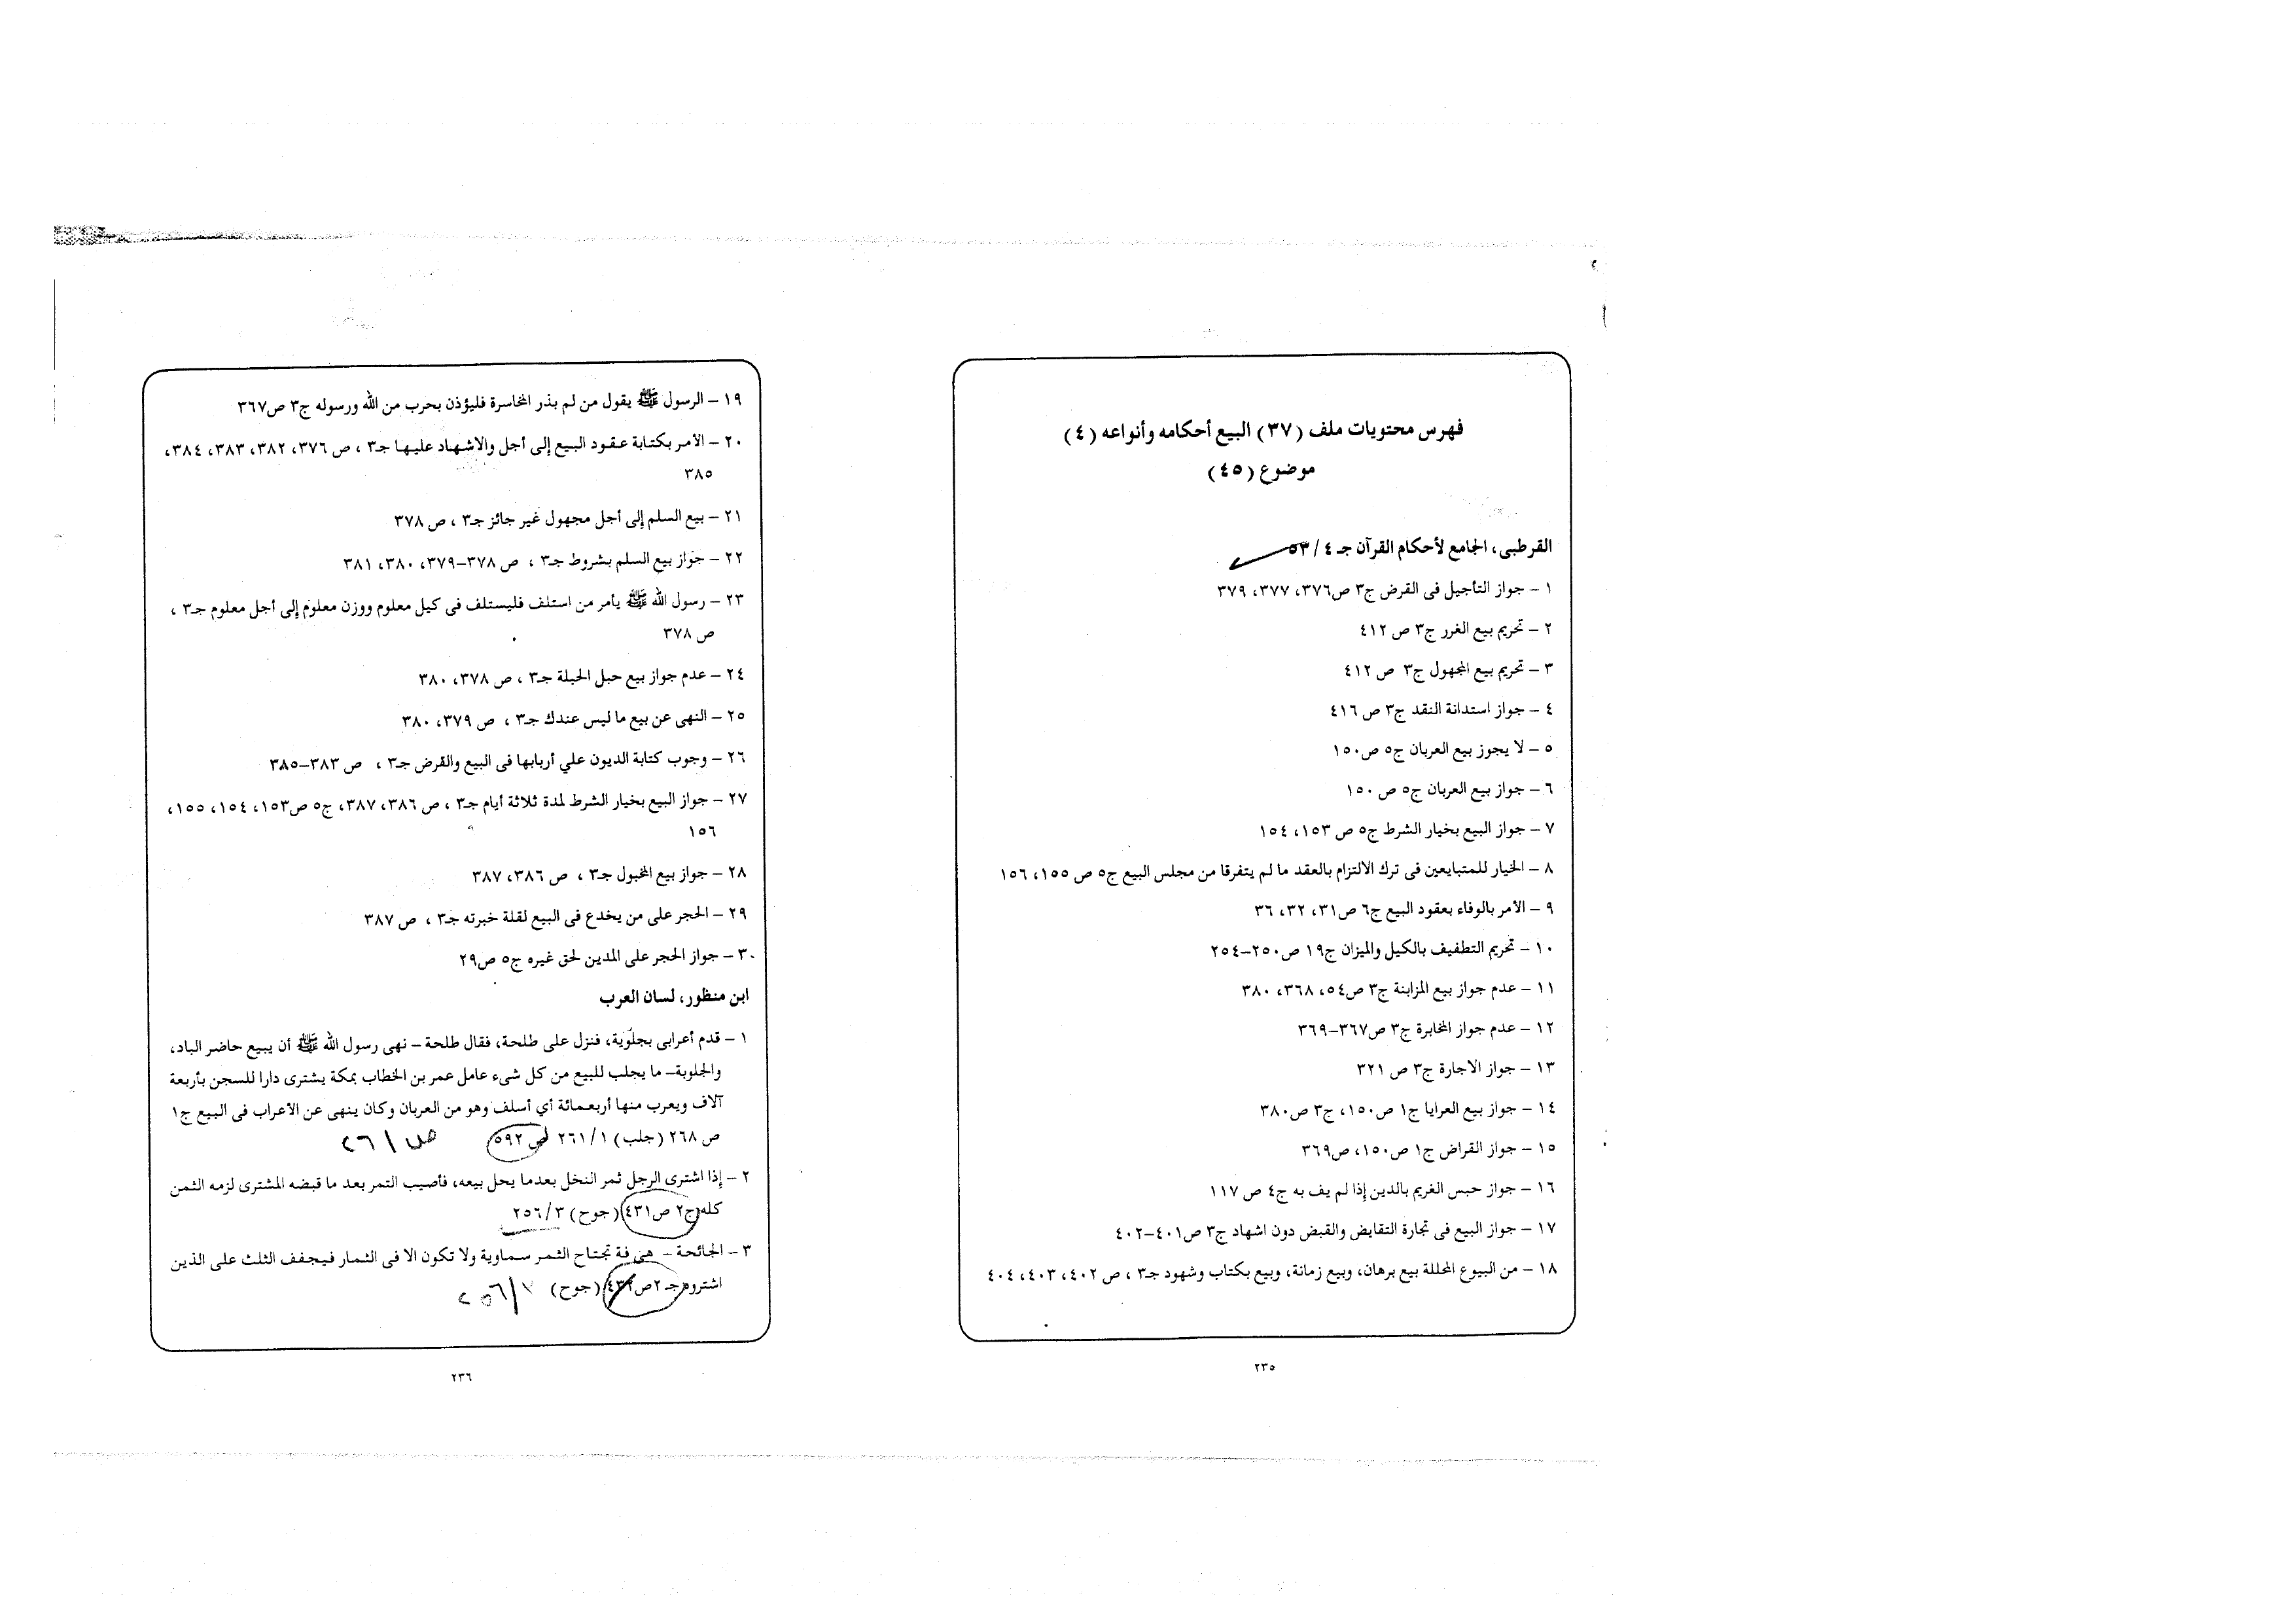 فهرس محتويات ملف (٣٧) البيع أحكامه وأنواعه (٤)
موضوع (٤٥)
القرطبى، الجامع لأحكام القرآن جـ ٤ / ٥٣
١ – جواز التأجيل فى القرض ج٣ ص٣٧٦، ٣٧٧، ٣٧٩
٢ – تحريم بيع الغرر ج٣ ص ٤١٢
٣ – تحريم بيع المجهول ج٣ ص ٤١٢
٤ – جواز استدانة النقد ج٣ ص ٤١٦
٥ – لا يجوز بيع العربان ج٥ ص١٥٠
٦ – جواز بيع العربان ج٥ ص ١٥٠
٧ – جواز البيع بخيار الشرط ج٥ ص ١٥٣، ١٥٤
٨ – الخيار للمتبايعين فى ترك الالتزام بالعقد ما لم يتفرقا من مجلس البيع ج٥ ص ١٥٥، ١٥٦
٩ – الأمر بالوفاء بعقود البيع ج٦ ص٣١، ٣٢، ٣٦
١٠ – تحريم التطفيف بالكيل والميزان ج١٩ ص٢٥٠–٢٥٤
١١ – عدم جواز بيع المزابنة ج٣ ص٥٤، ٣٦٨، ٣٨٠
١٢ – عدم جواز المخابرة ج٣ ص٣٦٧–٣٦٩
١٣ – جواز الاجارة ج٣ ص ٣٢١
١٤ – جواز بيع العرايا ج١ ص١٥٠، ج٣ ص٣٨٠
١٥ – جواز القراض ج١ ص١٥٠، ص٣٦٩
١٦ – جواز حبس الغريم بالدين إذا لم يف به ج٤ ص ١١٧
١٧ – جواز البيع فى تجارة التقايض والقبض دون اشهاد ج٣ ص٤٠١–٤٠٢
١٨ – من البيوع المحللة بيع برهان، وبيع زمانة، وبيع بكتاب وشهود جـ٣ ، ص ٤٠٢، ٤٠٣، ٤٠٤
٢٣٥
١٩ – الرسول ﷺ يقول من لم بذر المخاسرة فليؤذن بحرب من الله ورسوله ج٣ ص٣٦٧
٢٠ – الأمر بكتابة عقود البيع إلى أجل والاشهاد عليها جـ٣ ، ص ٣٧٦، ٣٨٢، ٣٨٣، ٣٨٤،
٣٨٥
٢١ – بيع السلم إلى أجل مجهول غير جائز جـ٣ ، ص ٣٧٨
٢٢ – جواز بيع السلم بشروط جـ٣ ، ص ٣٧٨–٣٧٩، ٣٨٠، ٣٨١
٢٣ – رسول الله ﷺ يأمر من استلف فليستلف فى كيل معلوم ووزن معلوم إلى أجل معلوم جـ٣ ،
ص ٣٧٨
٢٤ – عدم جواز بيع حبل الحبلة جـ٣ ، ص ٣٧٨، ٣٨٠
٢٥ – النهى عن بيع ما ليس عندك جـ٣ ، ص ٣٧٩، ٣٨٠
٢٦ – وجوب كتابة الديون علي أربابها فى البيع والقرض جـ٣ ، ص ٣٨٣–٣٨٥
٢٧ – جواز البيع بخيار الشرط لمدة ثلاثة أيام جـ٣ ، ص ٣٨٦، ٣٨٧، ج٥ ص١٥٣، ١٥٤، ١٥٥،
١٥٦
٢٨ – جواز بيع المخبول جـ٣ ، ص ٣٨٦، ٣٨٧
٢٩ – الحجر على من يخدع فى البيع لقلة خبرته جـ٣ ، ص ٣٨٧
٣٠ – جواز الحجر على المدين لحق غيره ج٥ ص٢٩
ابن منظور، لسان العرب
١ – قدم أعرابى بجلوبة، فنزل على طلحة، فقال طلحة – نهى رسول الله ﷺ أن يبيع حاضر الباد،
والجلوبة– ما يجلب للبيع من كل شىء عامل عمر بن الخطاب بمكة يشترى دارا للسجن بأربعة
آلاف ويعرب منها أربعمائة أي أسلف وهو من العربان وكان ينهى عن الأعراب فى البيع ج١
ص ٢٦٨ (جلب) ٢٦١/١ ص ٥٩٢
٢ – إذا اشترى الرجل ثمر النخل بعدما يحل بيعه، فأصيب التمر بعد ما قبضه المشترى لزمه الثمن
كله ج٢ ص٤٣١ (جوح) ٢٥٦/٣
٣ – الجائحة – هى فة تجتاح الثمر سماوية ولا تكون الا فى الثمار فيجفف الثلث على الذين
اشتروه جـ٢ ص٤٣١ (جوح) ٢٥٦/٣
٢٣٦